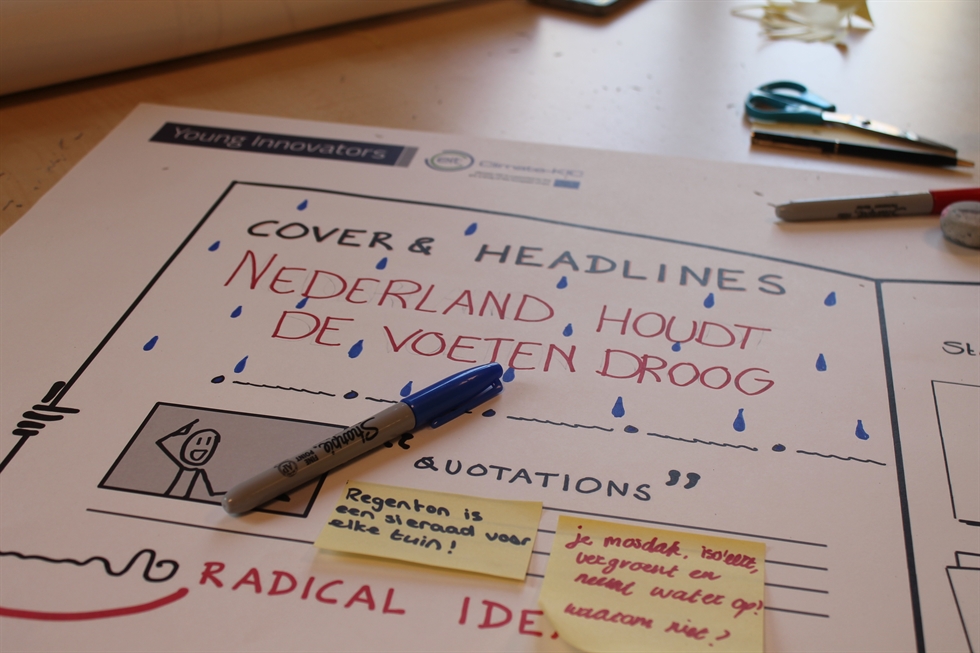 Young Innovators
Climate-KIC
COVER & HEADLINES
NEDERLAND HOUDT
DE VOETEN DROOG
Sharpie
FINE POINT
QUOTATIONS"
Regenton is
een sieraad voor
elke tuin!
je mosdak, isoleert,
vergroent en
neemt water op?
waarom niet?
RADICAL IDE